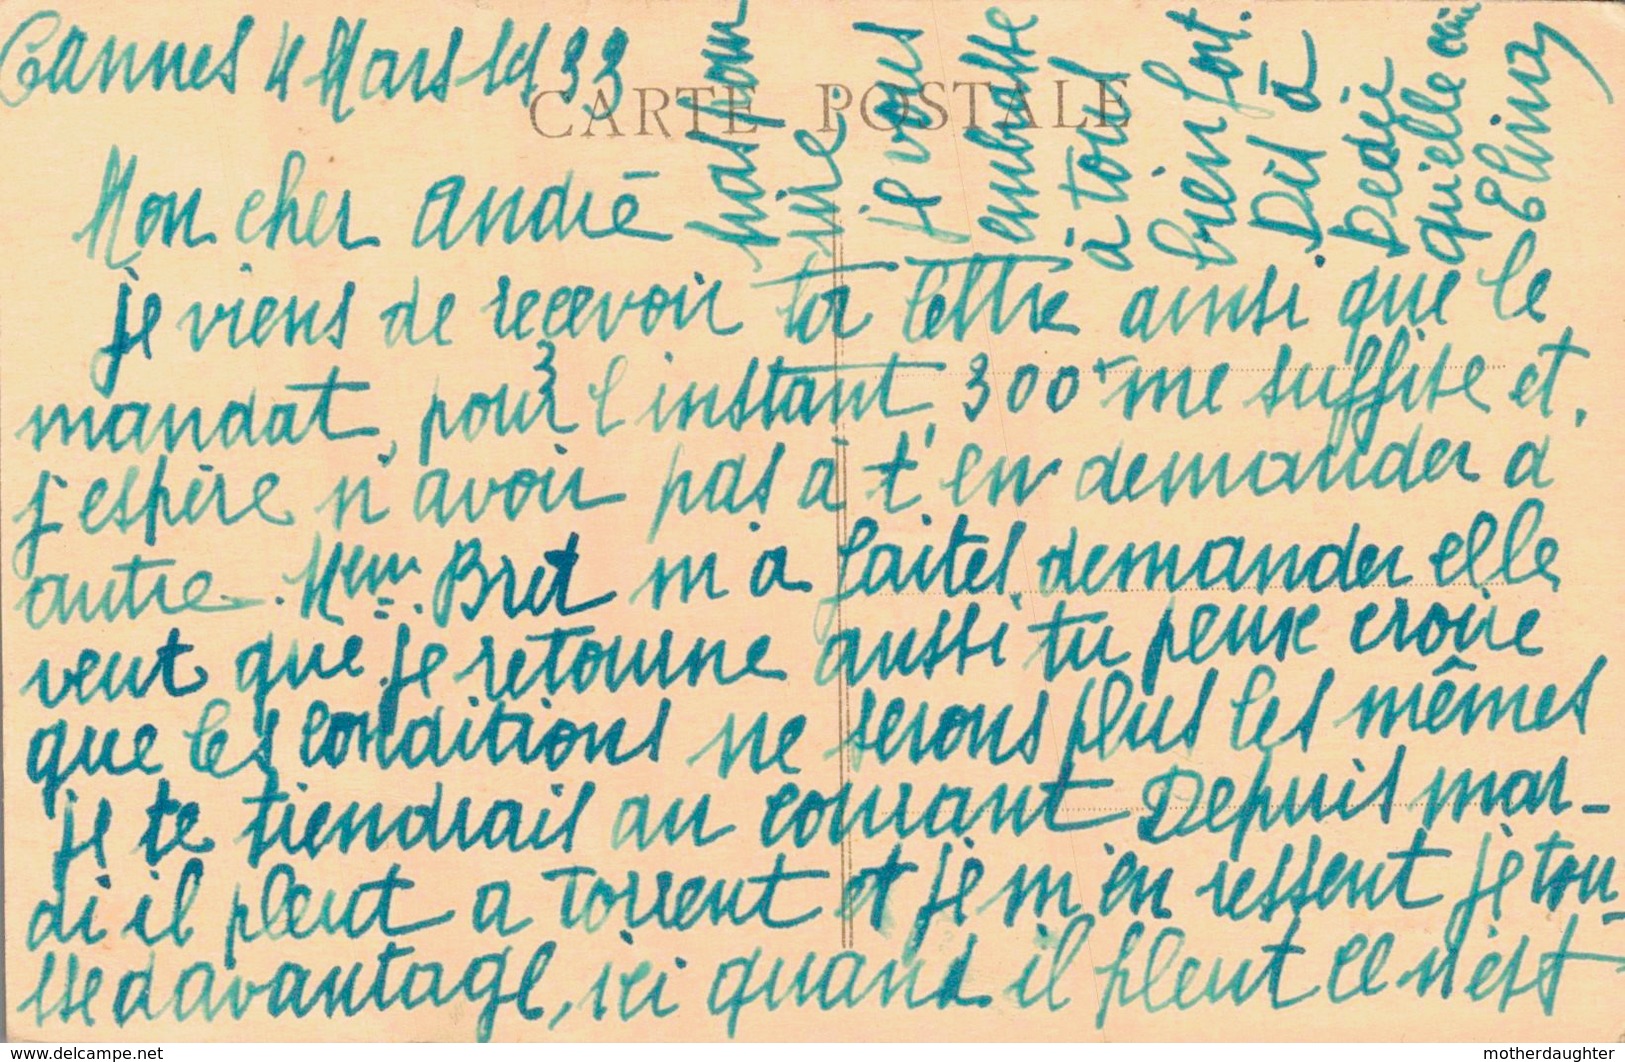 Cannes 4 Mars 1933
CARTE POSTALE
Mon cher André
je viens de recevoir ta lettre ainsi que le
mandat, pour l'instant 300f me suffise et,
j'espère n'avoir pas à t'en demander d
autre. Mem. Bret m'a faites demander elle
veut que je retourne aussi tu peux croire
que les conditions ne serons plus les mêmes
je te tiendrais au courant Depuis mar-
di il pleut a torrent et je m'en ressent je tou-
sse davantage, ici quand il pleut ce n'est
pas pour
rire.
je vous
embrasse
à tous
bien fort.
Dis à
Dédée
qu'elle
www.delcampe.net
motherdaughter